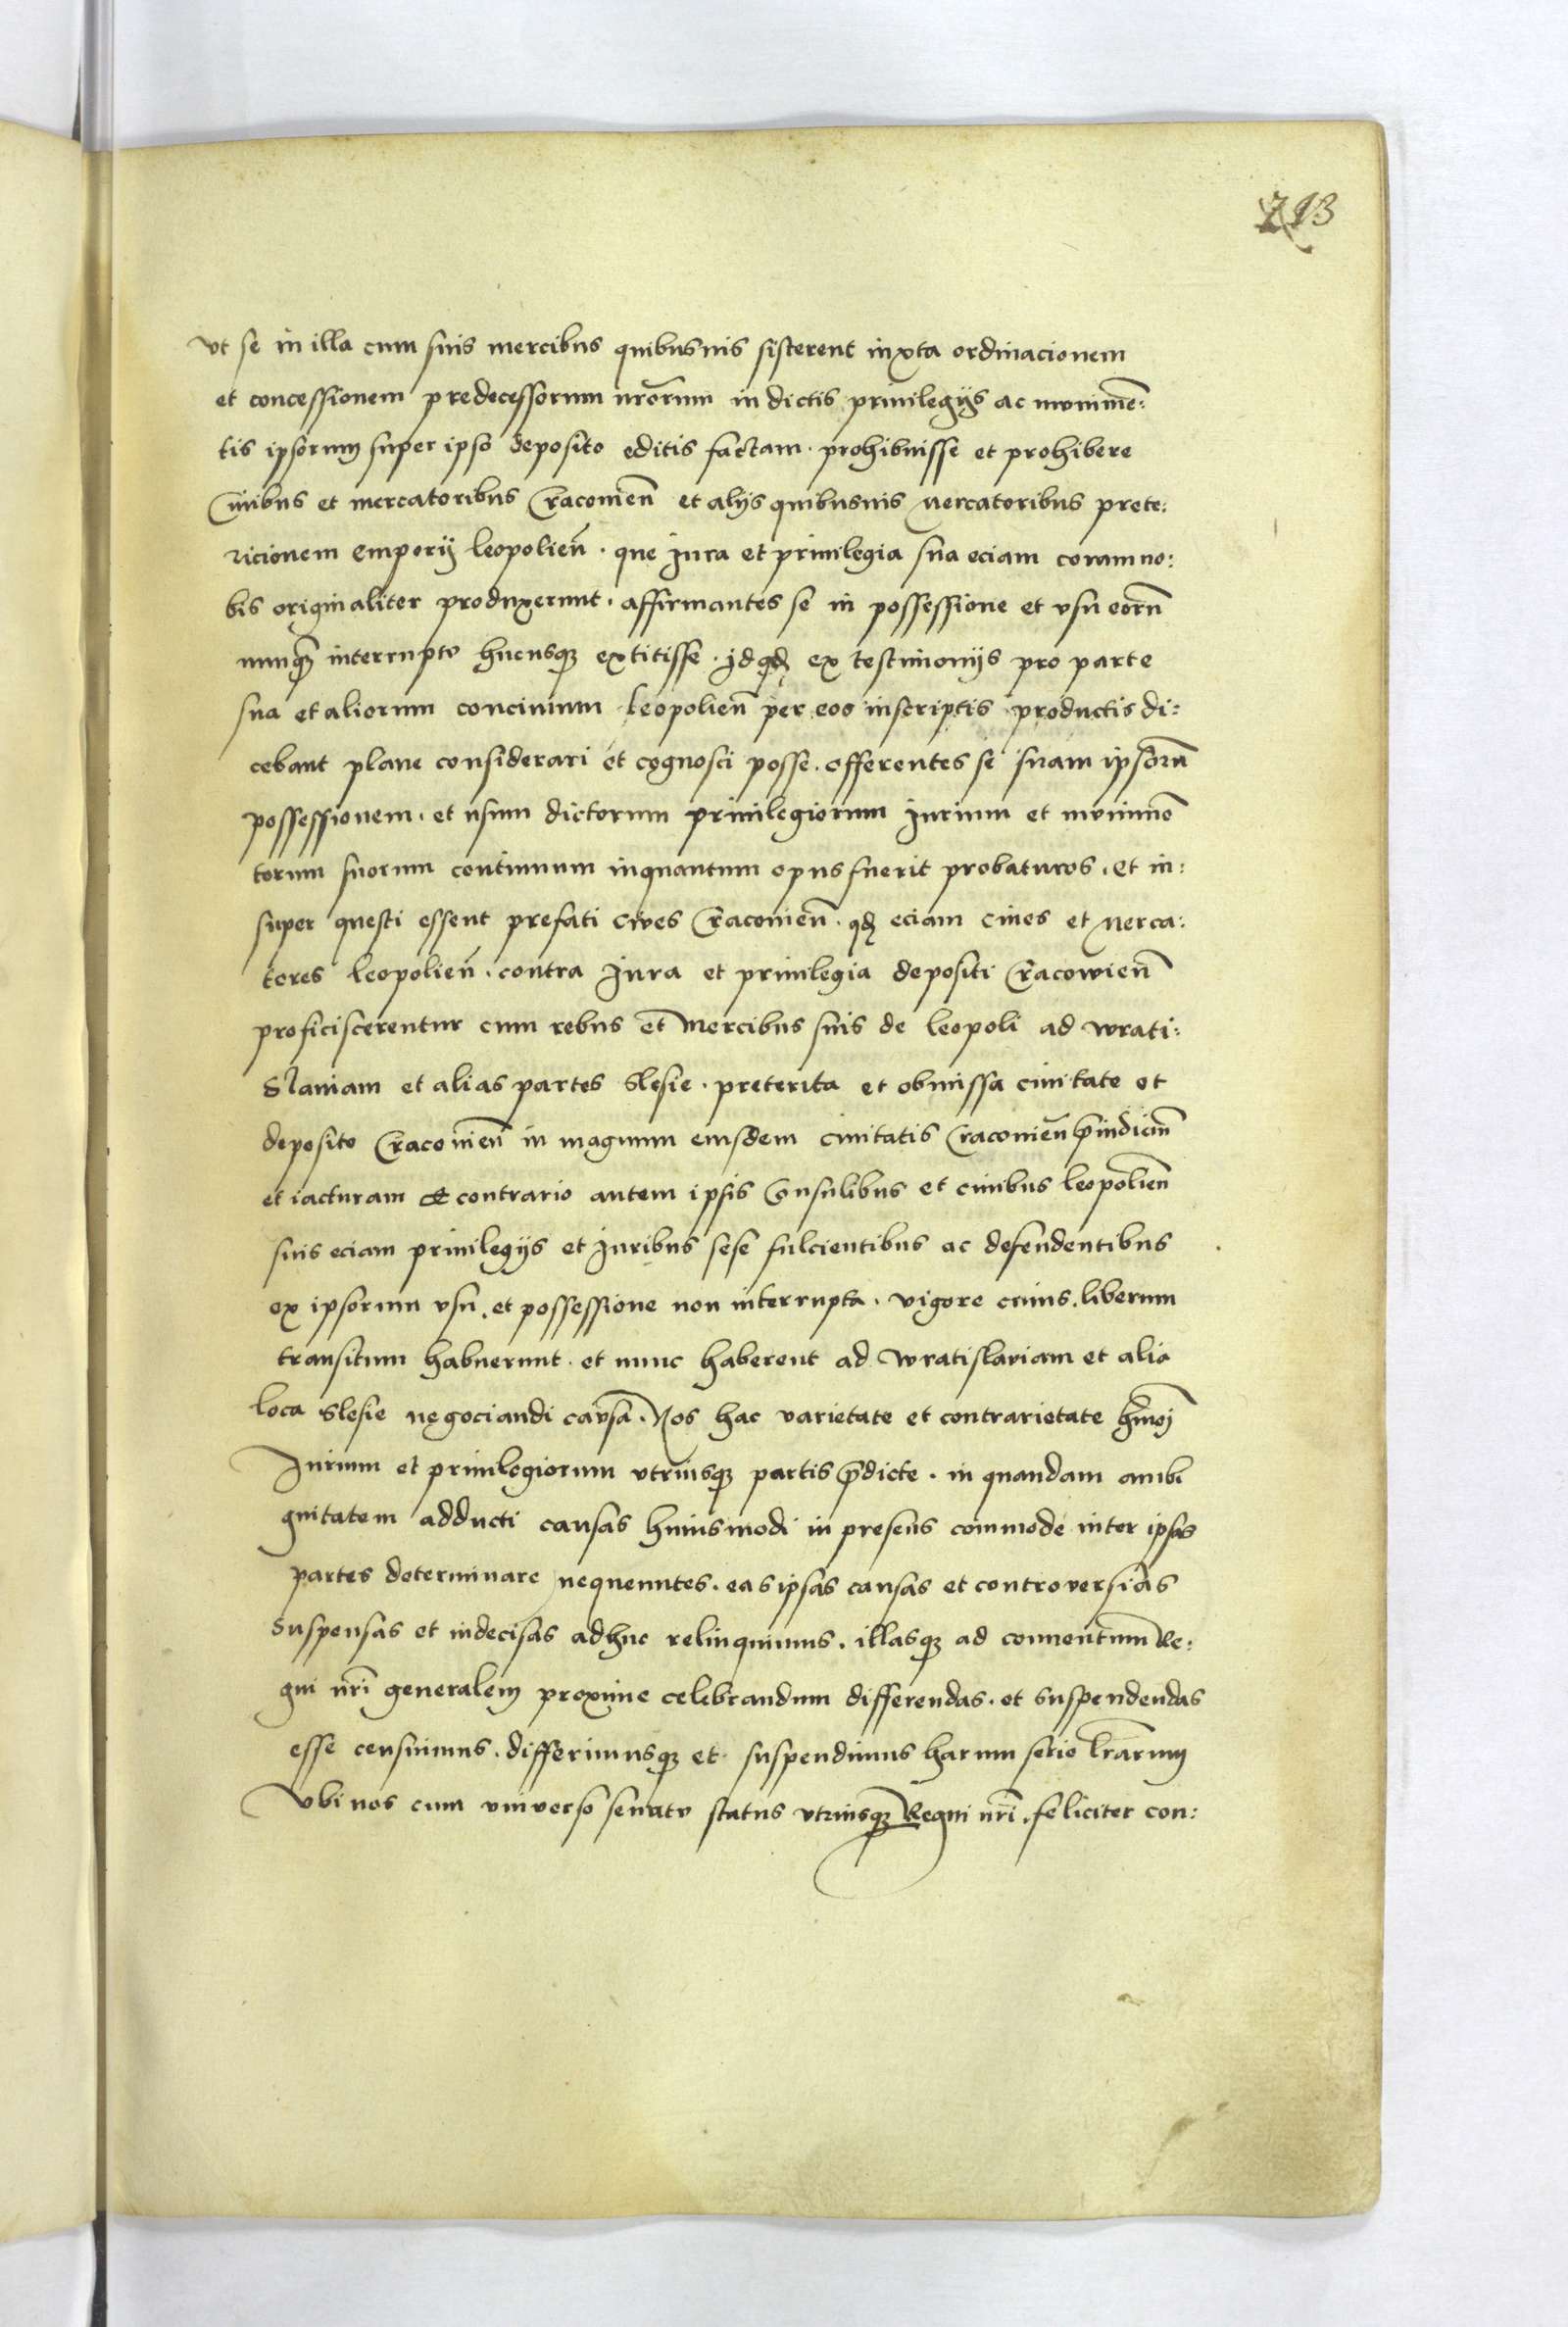 213
vt se in illa cum suis mercibus quibusuis sisterent iuxta ordinacionem
et concessionem predecessorum nrõrum in dictis priuilegijs ac munimẽ:
tis ipsorum super ipso deposito editis factam. prohibuisse et prohibere
Ciuibus et mercatoribus Cracouieñ et alijs quibusuis mercatoribus prete:
ricionem Emporij leopolieñ. que Jura et priuilegia sua eciam coram no:
bis originaliter produxerunt. affirmantes se in possessione et vsu eorũ
nunq̃ interrupto hucusq; extitisse. jdq; ex testimonijs pro parte
sua et aliorum conciuium leopolieñ per eos inscriptis productis di:
cebant plane considerari et cognosci posse. offerentes se suam ipsorũ
possessionem. et usum dictorum priuilegiorum Jurium et munimẽ
torum suorum continuum inquantum opus fuerit probaturos. Et in:
super questi essent prefati ciues Cracouieñ. qđ eciam ciues et merca:
tores leopolieñ. contra Jura et priuilegia depositi Cracowieñ
proficiscerentur cum rebus et mercibus suis de leopoli ad wrati:
slauiam et alias partes Slesie. preterita et obmissa ciuitate et
deposito Cracouieñ in magnum eiusdem ciuitatis Cracouieñ p̃iudiciũ
et iacturam E contrario autem ipsis Consulibus et ciuibus leopolieñ
suis eciam priuilegijs et Juribus sese fulcientibus ac defendentibus
ex ipsorum vsu. et possessione non interrupta. vigore cuius. liberum
transitum habuerunt. et nunc haberent ad wratislaviam et alia
loca Slesie negociandi causa. Nos hac varietate et contrarietate hmõi
Jurium et priuilegiorum vtriusq; partis p̃dicte. in quandam ambi
guitatem adducti causas huiusmodi in presens commode inter ipsas
partes determinare nequeuntes. eas ipsas causas et controversias
suspensas et indecisas adhuc relinquimus. illasq; ad conuentum Re:
gni nrĩ generalem proxime celebrandum differendas. et suspendendas
esse censuimus. differimusq; et suspendimus harum serie lrãrum
Vbi nos cum vniverso senatu status vtriusq; Regni nrĩ. feliciter con: